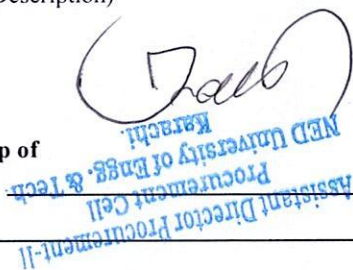 Description)
p of
Assistant Director Procurement-II
Procurement Cell
NED University of Engg. & Tech.
Karachi.